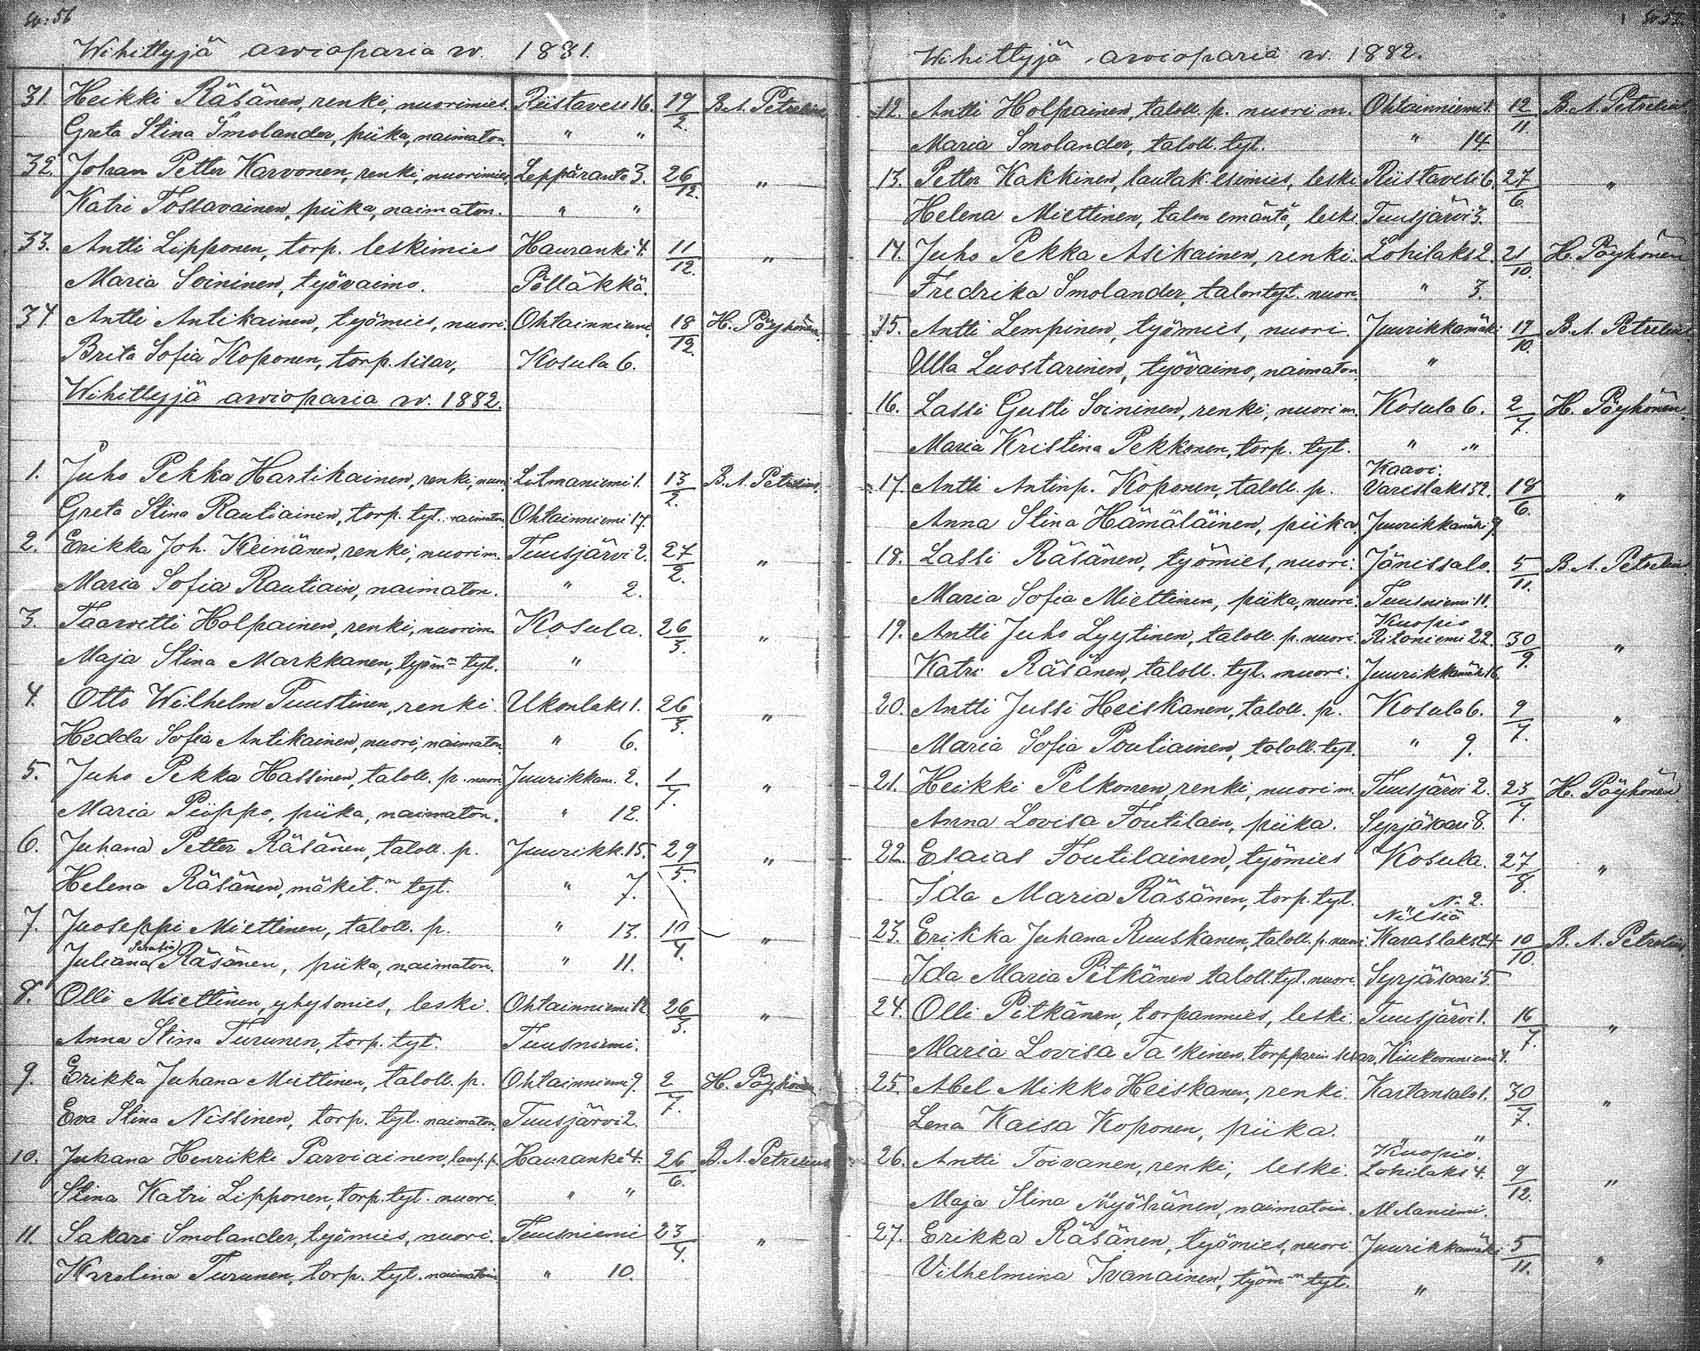 Siv: 56
Wihittyjä awioparia w. 1881.
31. Heikki Räsänen, renki, nuorimies. Riistavesi 16. 19/2. B. A. Petrelius
Greta Stina Smolander, piika, naimaton. " "
32. Johan Petter Karvonen, renki, nuorimies, Leppäranta 3. 26/12. "
Katri Tossavainen, piika, naimaton. " "
33. Antti Lipponen, torp. leskimies Hauranki 4. 11/12. "
Maria Soininen, työvaimo. Pölläkkä.
34 Antti Antikainen, työmies, nuori. Ohtainniemi 18/12. H. Pöyhönen
Brita Sofia Koponen, torp. sisar, Kosula 6.
Wihittyjä awioparia w. 1882.
1. Juho Pekka Hartikainen, renki, nuori. Litmaniemi 1. 13/2. B. A. Petrelius.
Greta Stina Rautiainen, torp. tyt. naimaton Ohtainniemi 17.
2. Erikka Joh. Keinänen, renki, nuorim. Tuusjärvi 2. 27/2. "
Maria Sofia Rautiain, naimaton. " 2.
3. Taavetti Holpainen, renki, nuorim. Kosula. 26/3. "
Maja Stina Markkanen, työmn tyt. "
4. Otto Wilhelm Puustinen, renki. Ukonlaks 1. 26/3. "
Hedda Sofia Antikainen, nuori, naimaton. " 6.
5. Juho Pekka Hassinen, taloll. p. nuori Juurikkam. 2. 1/7. "
Maria Piippo, piika, naimaton. " 12.
6. Juhana Petter Räsänen, taloll. p. Juurikk. 15. 29/5. "
Helena Räsänen, mäkit.n tyt. " 7.
7. Juoseppi Miettinen, taloll. p. " 13. 10/4. "
Juliana Räsänen, piika, naimaton. " 11.
8. Olli Miettinen, yhtymies, leski. Ohtainniemi 12 26/3. "
Anna Stina Turunen, torp. tyt. Tuusniemi.
9. Erikka Juhana Miettinen, taloll. p. Ohtainniemi 9. 2/7. H. Pöyhönen
Eva Stina Nissinen, torp. tyt. naimaton. Tuusjärvi 2.
10. Juhana Henrikki Parviainen, lamp. p. Hauranki 4. 26/6. B. A. Petrelius
Stina Katri Lipponen, torp. tyt. nuori. " "
11. Sakari Smolander, työmies, nuori. Tuusniemi 23/4. "
Karolina Turunen, torp. tyt. naimaton " 10.
Wihittyjä awioparia w. 1882.
12. Antti Holpainen, taloll. p. nuori m. Ohtainniemi 1. 12/11. B. A. Petrelius
Maria Smolander, taloll. tyt. " 14.
13. Petter Kakkinen, lautak. esimies, leski Riistavesi 6. 27/6. "
Helena Miettinen, talon emäntä, lesk. Tuusjärvi 3.
14. Juho Pekka Asikainen, renki. Lohilaks 2. 21/10. H. Pöyhönen
Fredrika Smolander, talon tyt. nuori " 3.
15. Antti Lempinen, työmies, nuori. Juurikkamäki 19/10. B. A. Petrelius
Ulla Luostarinen, työvaimo, naimaton. "
16. Lassi Gusti Soininen, renki, nuori m. Kosula 6. 2/7. H. Pöyhönen.
Maria Kristina Pekkonen, torp. tyt. " "
17. Antti Antinp. Koponen, taloll. p. Kaavi. Varislaks 12. 18/6. "
Anna Stina Hämäläinen, piika. Juurikkamäki 9.
18. Lassi Räsänen, työmies, nuori. Jänissalo. 5/11. B. A. Petrelius
Maria Sofia Miettinen, piika, nuori. Tuusniemi 11.
19. Antti Juho Lyytinen, taloll. p. nuori. Kuopio Ritoniemi 22. 30/9. "
Katri Räsänen, taloll. tyt. nuori. Juurikkamäki 16.
20. Antti Jussi Heiskanen, taloll. p. Kosula 6. 9/7. "
Maria Sofia Poutiainen, taloll. tyt. " 9.
21. Heikki Pelkonen, renki, nuori m. Tuusjärvi 2. 23/7. H. Pöyhönen
Anna Lovisa Toutilain, piika. Syrjäsaari 8.
22. Esaias Toutilainen, työmies Kosula. 27/8. "
Ida Maria Räsänen, torp. tyt. " N. 2.
23. Erikka Juhana Ruuskanen, taloll. p. nuori. Nilsiä Karaslaks 24. 10/10 B. A. Petrelius.
Ida Maria Pitkänen taloll. tyt. nuori. Syrjäsaari 5
24. Olli Pitkänen, torpanmies, leski. Tuusjärvi 1. 16/7. "
Maria Lovisa Taskinen, torpparin sisar, Kiukoonniemi 4.
25. Abel Mikko Heiskanen, renki. Kartansalo 1. 30/7. "
Lena Kaisa Koponen, piika. "
26. Antti Toivanen, renki, leski. Kuopio. Lohilaks 4. 9/12. "
Maja Stina Myöhänen, naimatoin. Melaniemi.
27. Erikka Räsänen, työmies, nuori Juurikkamäki 5/11. "
Vilhelmina Ivanainen, työmn tyt. "